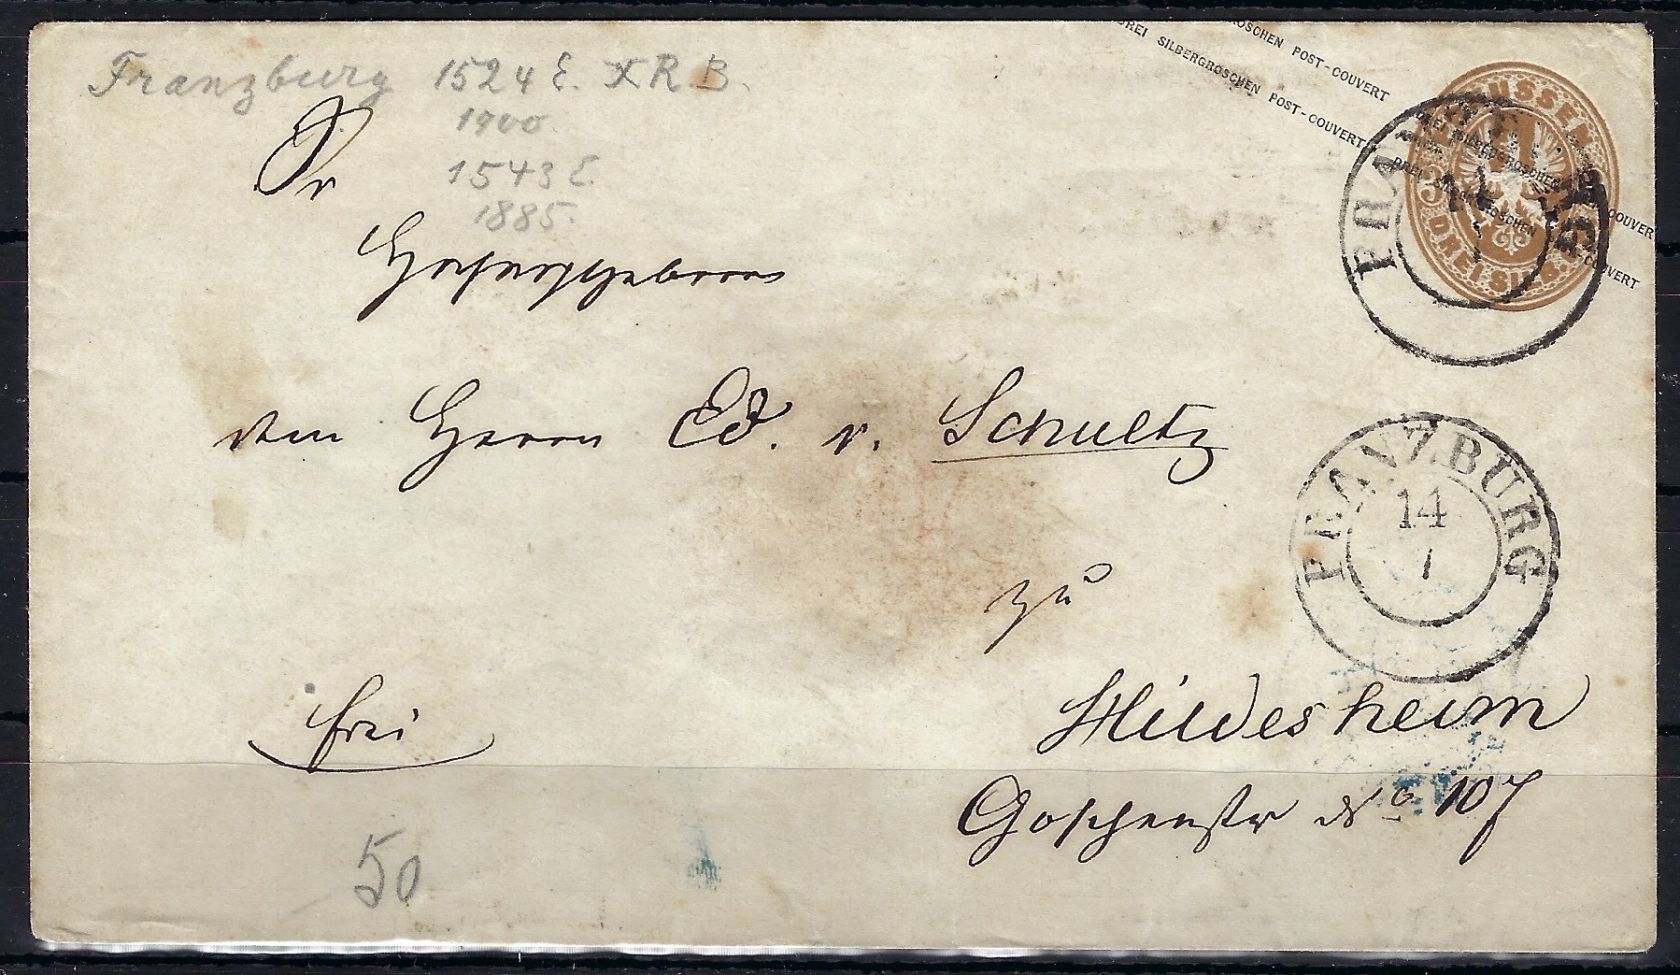 Franzburg 1524 E. X R. B.
1900.
1543 E.
1885.
DREI SILBERGROSCHEN POST-COUVERT
GROSCHEN POST-COUVERT
DREI SILBERGROSCHEN POST-COUVERT
DREI SILBERGROSCHEN POST-COUVERT
PREUSSEN
3 DREI SILB. GR. 3
FRANZBURG
14
Sr
Hochwohlgeboren
dem Herrn Ed. v. Schultz
FRANZBURG
14
1
zu
Hildesheim
frei
Goschenstr No 107
50